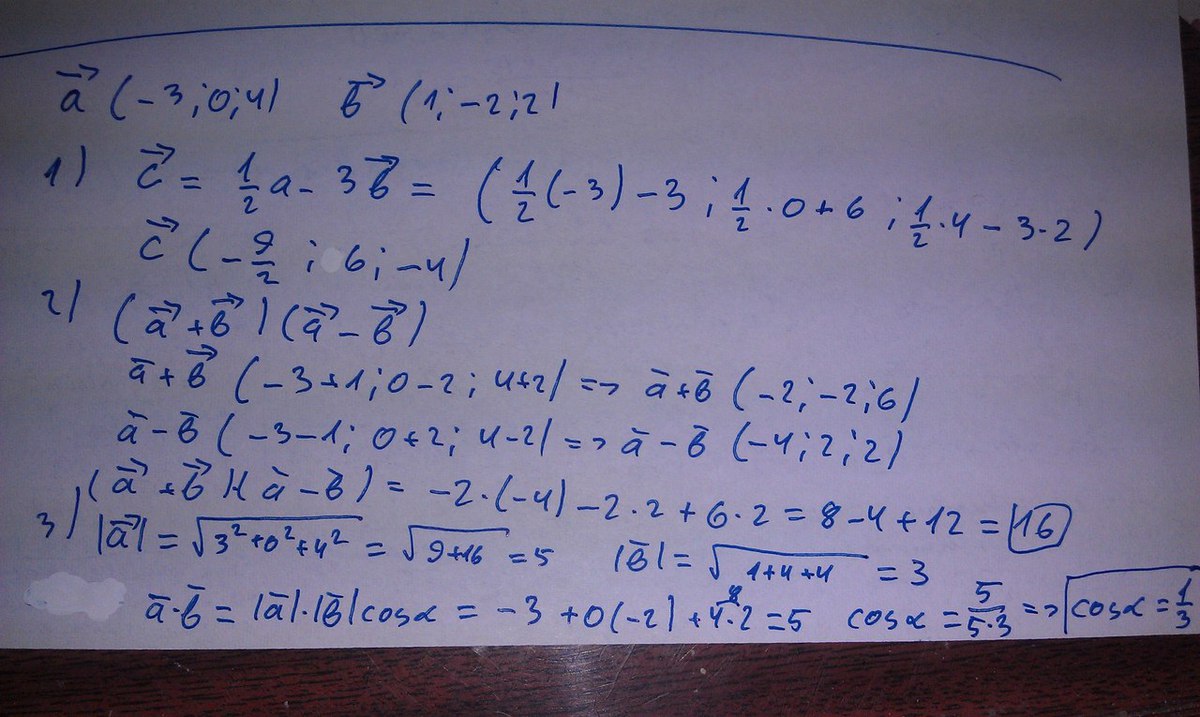 a⃗ (-3;0;4) b⃗ (1;-2;2)
1) c⃗ = 1/2 a - 3b⃗ = (1/2(-3)-3 ; 1/2·0+6 ; 1/2·4-3·2)
c⃗ (-9/2 ; 6; -4)
2) (a⃗+b⃗)(a⃗-b⃗)
ā+b⃗ (-3+1;0-2; 4+2) => ā+b̄ (-2;-2;6)
ā-b̄ (-3-1; 0+2; 4-2) => ā-b̄ (-4;2;2)
(a⃗+b⃗)(ā-b̄) = -2·(-4)-2·2+6·2=8-4+12=16
3) |a⃗| = √(3²+0²+4²) = √(9+16) = 5 |b̄| = √(1+4+4) = 3
ā·b̄ = |ā|·|b̄|cosα = -3+0(-2)+4·2=5 cosα = 5/5·3 => cosα = 1/3